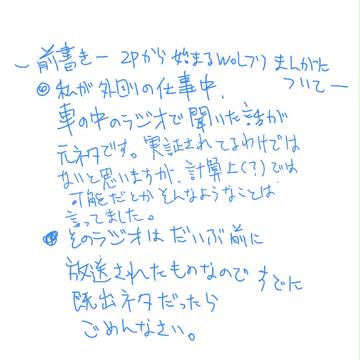 ～前書きー 2Pから始まるWoLブリまんがに
ついてー
◎私が外回りの仕事中、
車の中のラジオで聞いた話が
元ネタです。実証されてるわけでは
ないと思いますが、計算上(?)では
可能だとかそんなようなことは
言ってました。
◎そのラジオはだいぶ前に
放送されたものなのですでに
既出ネタだったら
ごめんなさい。